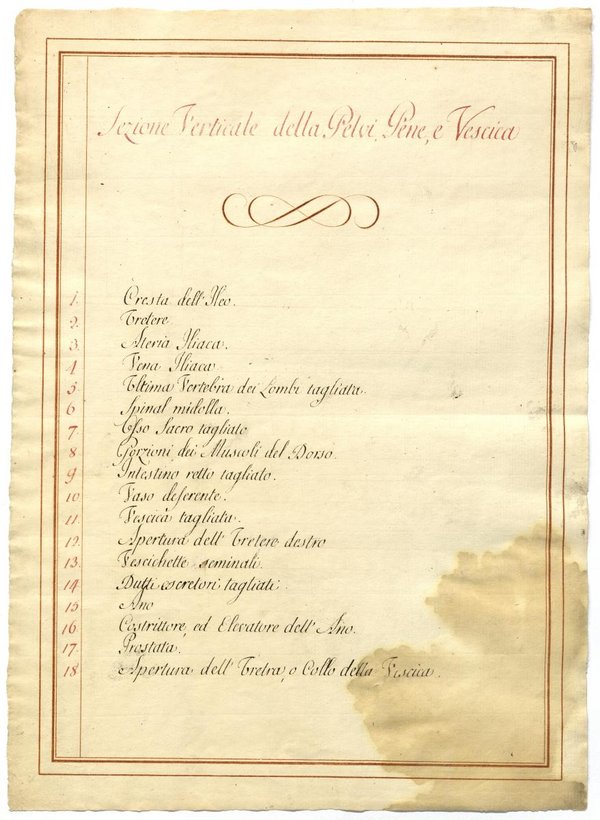 Sezione Verticale della Pelvi, Pene, e Vescica
1. Cresta dell'Ileo.
2. Uretere
3. Arteria Iliaca.
4 Vena Iliaca
5 Ultima Vertebra dei Lombi tagliata
6 Spinal midolla.
7 Osso Sacro tagliato
8 Porzioni dei Muscoli del Dorso
9 Intestino retto tagliato.
10 Vaso deferente.
11. Vescica tagliata.
12. Apertura dell'Uretere destro
13. Vescichette seminali.
14 Dutti escretori tagliati.
15 Ano
16 Costrittore, ed Elevatore dell'Ano.
17. Prostata.
18 Apertura dell'Uretra, o Collo della Vescica.